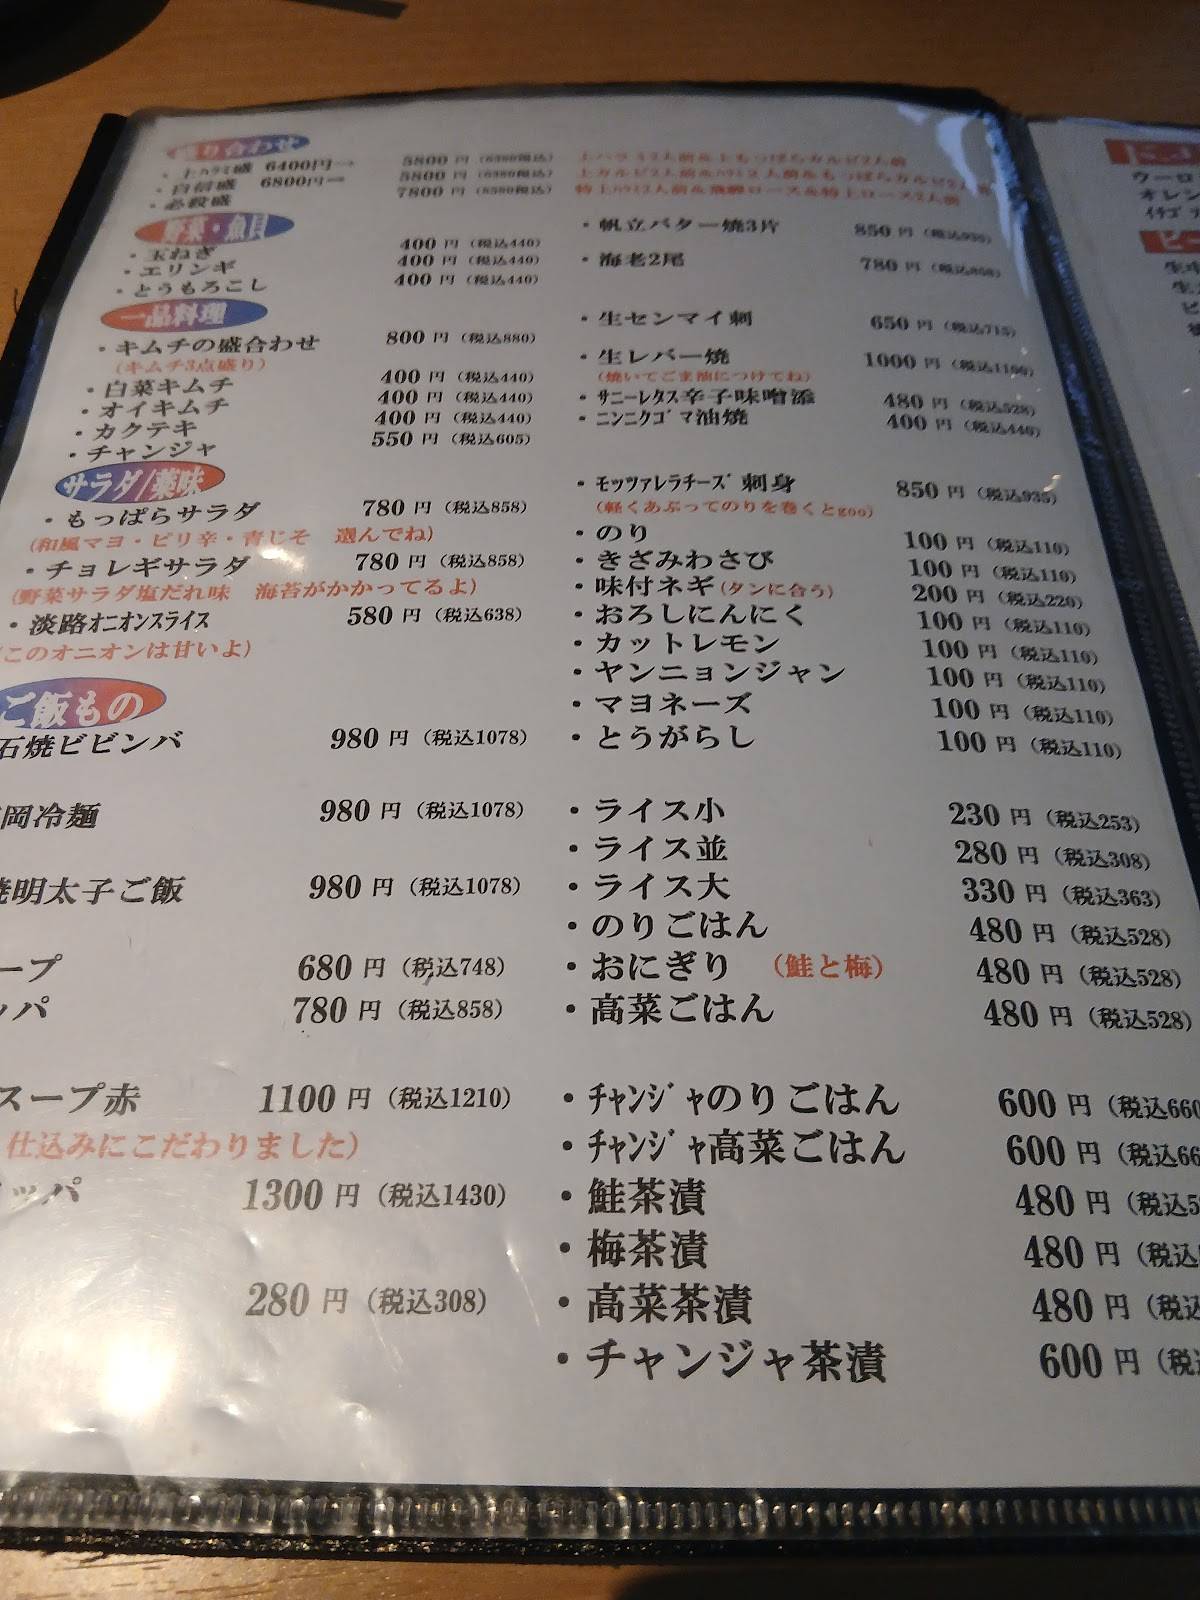 盛り合わせ
・上ハラミ盛 6400円→ 5800円(6380税込) 上ハラミ2人前&上もっぱらカルビ2人前
・自信盛 6800円→ 5800円(6380税込) 上カルビ2人前&ハラミ2人前&もっぱらカルビ2人
・必殺盛 7800円(8580税込) 特上ハラミ2人前&飛騨ロース&特上ロース2人前
野菜・魚貝
・玉ねぎ 400円(税込440) ・帆立バター焼3片 850円(税込935)
・エリンギ 400円(税込440) ・海老2尾 780円(税込858)
・とうもろこし 400円(税込440)
一品料理
・キムチの盛合わせ 800円(税込880) ・生センマイ刺 650円(税込715)
(キムチ3点盛り) ・生レバー焼 1000円(税込1100)
・白菜キムチ 400円(税込440) (焼いてごま油につけてね)
・オイキムチ 400円(税込440) ・サニーレタス辛子味噌添 480円(税込528)
・カクテキ 400円(税込440) ・ニンニクゴマ油焼 400円(税込440)
・チャンジャ 550円(税込605)
サラダ/薬味
・もっぱらサラダ 780円(税込858) ・モッツァレラチーズ刺身 850円(税込935)
(和風マヨ・ピリ辛・青じそ 選んでね) (軽くあぶってのりを巻くとgoo)
・チョレギサラダ 780円(税込858) ・のり 100円(税込110)
(野菜サラダ塩だれ味 海苔がかかってるよ) ・きざみわさび 100円(税込110)
・淡路オニオンスライス 580円(税込638) ・味付ネギ(タンに合う) 200円(税込220)
(このオニオンは甘いよ) ・おろしにんにく 100円(税込110)
・カットレモン 100円(税込110)
・ヤンニョンジャン 100円(税込110)
・マヨネーズ 100円(税込110)
・とうがらし 100円(税込110)
ご飯もの
石焼ビビンバ 980円(税込1078)
岡冷麺 980円(税込1078) ・ライス小 230円(税込253)
・ライス並 280円(税込308)
焼明太子ご飯 980円(税込1078) ・ライス大 330円(税込363)
・のりごはん 480円(税込528)
ープ 680円(税込748) ・おにぎり (鮭と梅) 480円(税込528)
ッパ 780円(税込858) ・高菜ごはん 480円(税込528)
スープ赤 1100円(税込1210) ・チャンジャのりごはん 600円(税込660
仕込みにこだわりました) ・チャンジャ高菜ごはん 600円(税込66
ッパ 1300円(税込1430) ・鮭茶漬 480円(税込5
・梅茶漬 480円(税込
280円(税込308) ・高菜茶漬 480円(税込
・チャンジャ茶漬 600円(税込
ウーロ
オレン